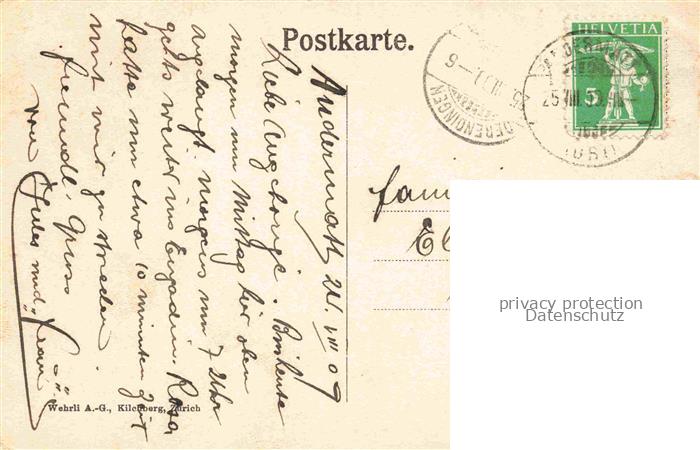 Postkarte.
HELVETIA
5
DERENDINGEN
Andermatt 24. VIII 09
Liebe Angehörige. Bin heute
morgen um Mittag hier oben
angelangt. morgens um 7 Uhr
gehts weiter ins Engadin. Rosa
hatte nun etwa 10 minuten Zeit
mit mir zu
freundl. Gruss
von Jules und Frau
Fam
El
privacy protection
Datenschutz
Wehrli A.-G., Kilchberg, Zürich